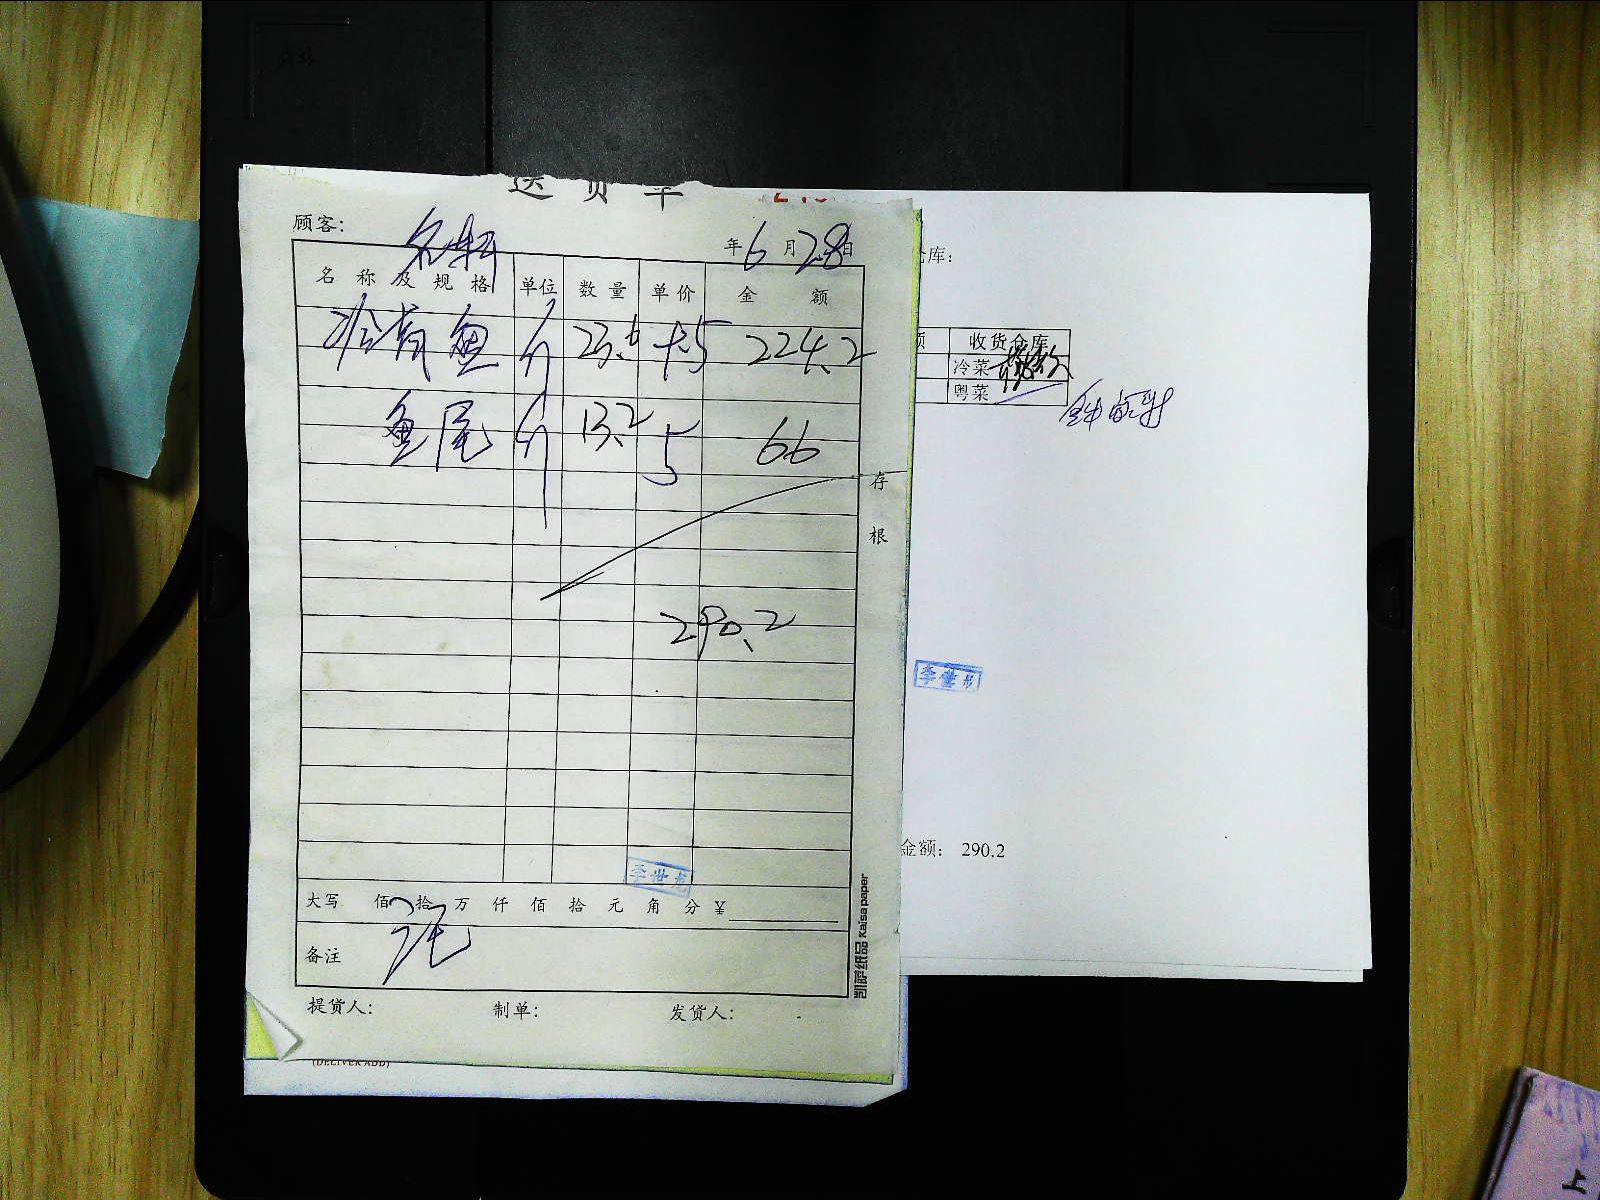 送货单
顾客: 名轩
年6月28日
名称及规格 单位 数量 单价 金额
冶青鱼 斤 23.6 9.5 224.2
鱼尾 斤 13.2 5 66
290.2
存根
李世龙
大写 佰 拾 万 仟 佰 拾 元 角 分 ¥
备注
提货人: 制单: 发货人:
凯萨纸品 Kaisa paper
(DELIVER ADD)
仓库:
额 收货仓库
冷菜
粤菜
李世龙
金额: 290.2
上